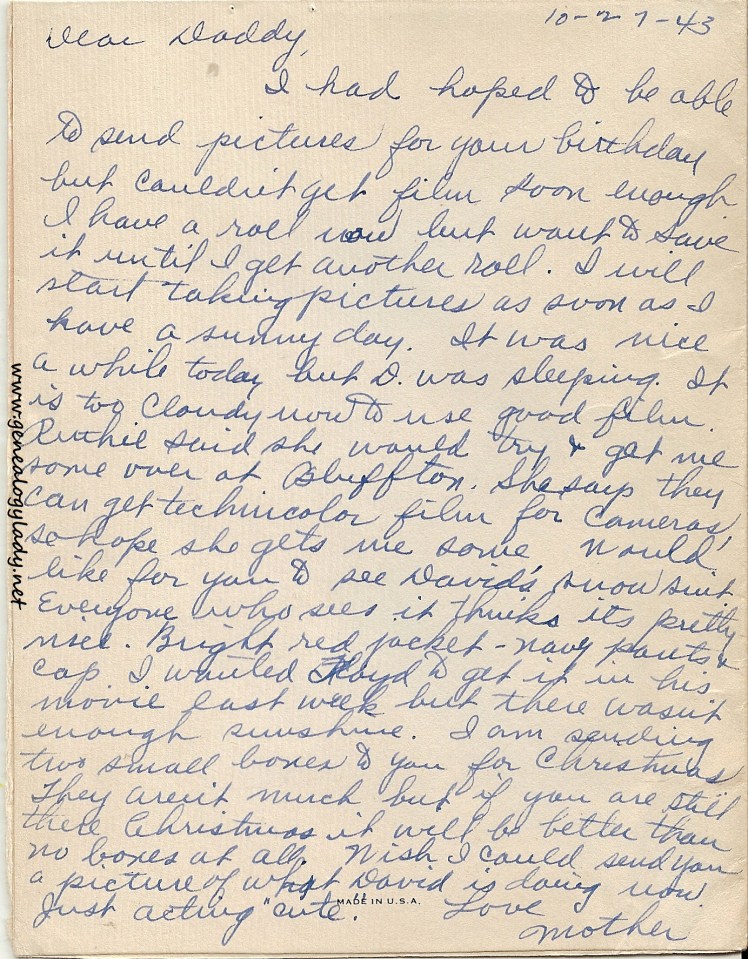 10-27-43
Dear Daddy,
I had hoped to be able
to send pictures for your birthday
but couldn't get film soon enough
I have a roll now but want to save
it until I get another roll. I will
start taking pictures as soon as I
have a sunny day. It was nice
a while today but D. was sleeping. It
is too cloudy now to use good film.
Ruthie said she would try & get me
some over at Bluffton. She says they
can get technicolor film for cameras,
so hope she gets me some. Would
like for you to see David's snow suit
Everyone who sees it thinks its pretty
nice. Bright red jacket - navy pants &
cap. I wanted Floyd to get it in his
movie last week but there wasn't
enough sunshine. I am sending
two small boxes to you for Christmas
They aren't much but if you are still
there Christmas it will be better than
no boxes at all. Wish I could send you
a picture of what David is doing now.
Just "acting cute." Love
Mother
MADE IN U.S.A.
www.genealogylady.net